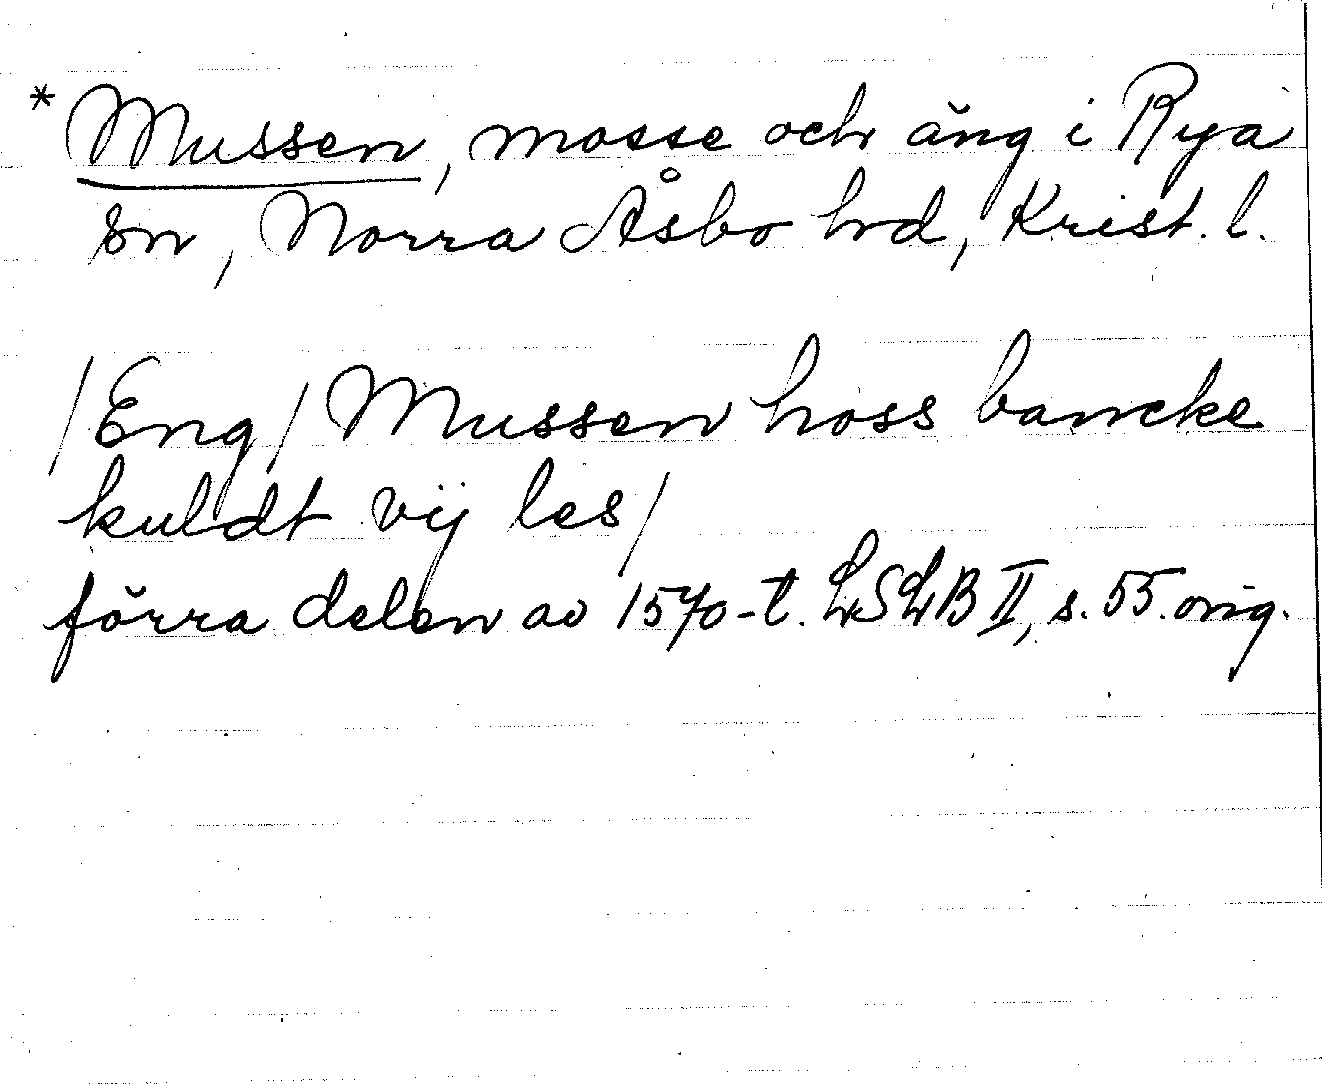 * Mussen, mosse och äng i Rya
sn, Norra Åsbo hd, Krist. l.
/Eng/ Mussen hoss bancke
kuldt vij les/
förra delen av 1570-t. LSLB II, s. 55. orig.